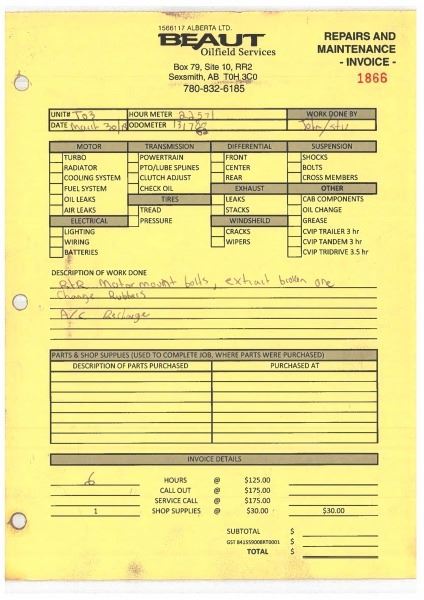 1566117 ALBERTA LTD.
BEAUT
Oilfield Services
Box 79, Site 10, RR2
Sexsmith, AB T0H 3C0
780-832-6185
REPAIRS AND
MAINTENANCE
- INVOICE -
1866
UNIT# T03 HOUR METER 22571 WORK DONE BY
DATE March 30/ ODOMETER John/
MOTOR TRANSMISSION DIFFERENTIAL SUSPENSION
TURBO POWERTRAIN FRONT SHOCKS
RADIATOR PTO/LUBE SPLINES CENTER BOLTS
COOLING SYSTEM CLUTCH ADJUST REAR CROSS MEMBERS
FUEL SYSTEM CHECK OIL EXHAUST OTHER
OIL LEAKS TIRES LEAKS CAB COMPONENTS
AIR LEAKS TREAD STACKS OIL CHANGE
ELECTRICAL PRESSURE WINDSHEILD GREASE
LIGHTING CRACKS CVIP TRAILER 3 hr
WIRING WIPERS CVIP TANDEM 3 hr
BATTERIES CVIP TRIDRIVE 3.5 hr
DESCRIPTION OF WORK DONE
R+R Motormount bolts, extract broken one
Change Rubbers
A/C Recharge
PARTS & SHOP SUPPLIES (USED TO COMPLETE JOB, WHERE PARTS WERE PURCHASED)
DESCRIPTION OF PARTS PURCHASED PURCHASED AT
INVOICE DETAILS
6 HOURS @ $125.00
CALL OUT @ $175.00
SERVICE CALL @ $175.00
1 SHOP SUPPLIES @ $30.00 $30.00
SUBTOTAL $
GST 841559008RT0001 $
TOTAL $